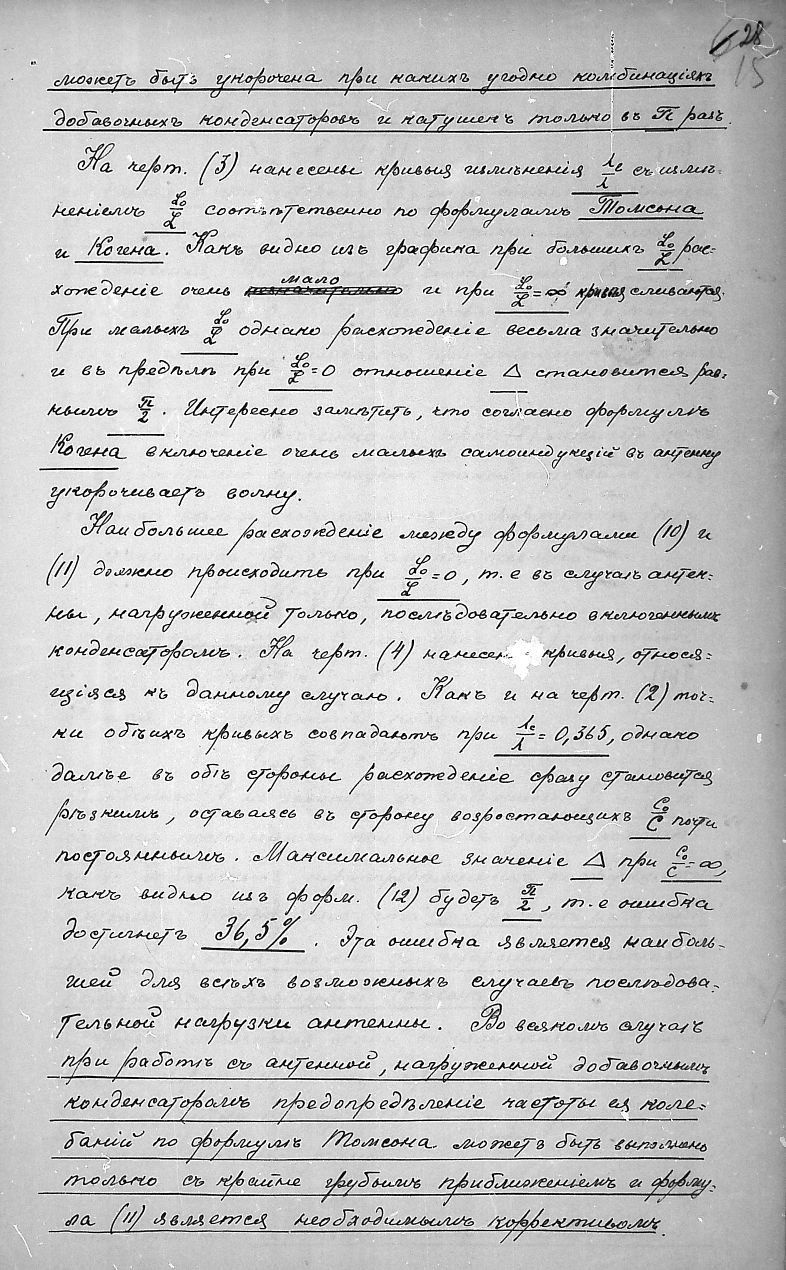 28
15
можетъ быть укорочена при какихъ угодно комбинацiяхъ
добавочныхъ конденсаторовъ и катушекъ только въ π разъ.
На черт. (3) нанесены кривыя измѣненiя λе/λ съ измѣ-
ненiемъ L₀/L соотвѣтственно по формуламъ Томсона
и Когена. Какъ видно изъ графика при большихъ L₀/L рас-
хожденiе очень мало и при L₀/L=∞ кривыя сливаются.
При малыхъ L₀/L однако расхожденiе весьма значительно
и въ предѣлѣ при L₀/L=0 отношенiе Δ становится рав-
нымъ π/2. Интересно замѣтить, что согласно формулѣ
Когена включенiе очень малыхъ самоиндукцiй въ антенну
укорочиваетъ волну.
Наибольшее расхожденiе между формулами (10) и
(11) должно происходить при L₀/L=0, т.е въ случаѣ антен-
ны, нагруженной только, послѣдовательно включеннымъ
конденсаторомъ. На черт. (4) нанесен кривыя, относя-
щiяся къ данному случаю. Какъ и на черт. (2) точ-
ки обѣихъ кривыхъ совпадаютъ при λе/λ=0,365, однако
далѣе въ обѣ стороны расхожденiе сразу становится
рѣзкимъ, оставаясь въ сторону возростающихъ C₀/C почти
постояннымъ. Максимальное значенiе Δ при C₀/C=∞,
какъ видно изъ форм. (12) будетъ π/2, т.е ошибка
достигнетъ 36,5%. Эта ошибка является наиболь-
шей для всѣхъ возможныхъ случаевъ послѣдова-
тельной нагрузки антенны. Во всякомъ случаѣ
при работѣ съ антенной, нагруженной добавочнымъ
конденсаторомъ предопредѣленiе частоты ея коле-
банiй по формулѣ Томсона можетъ быть выполнено
только съ крайне грубымъ приближенiемъ и форму-
ла (11) является необходимымъ коррективомъ.